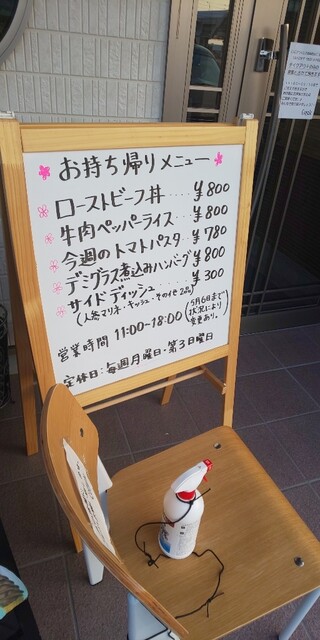 お持ち帰りメニュー
ローストビーフ丼‥‥¥800
牛肉ペッパーライス‥‥¥800
今週のトマトパスタ‥¥780
デミグラス煮込みハンバーグ¥800
サイドディッシュ‥‥¥300
(人参マリネ・キッシュ・その他2品)
営業時間 11:00~18:00(5月6日まで状況により変更あり。)
定休日:毎週月曜日・第3日曜日